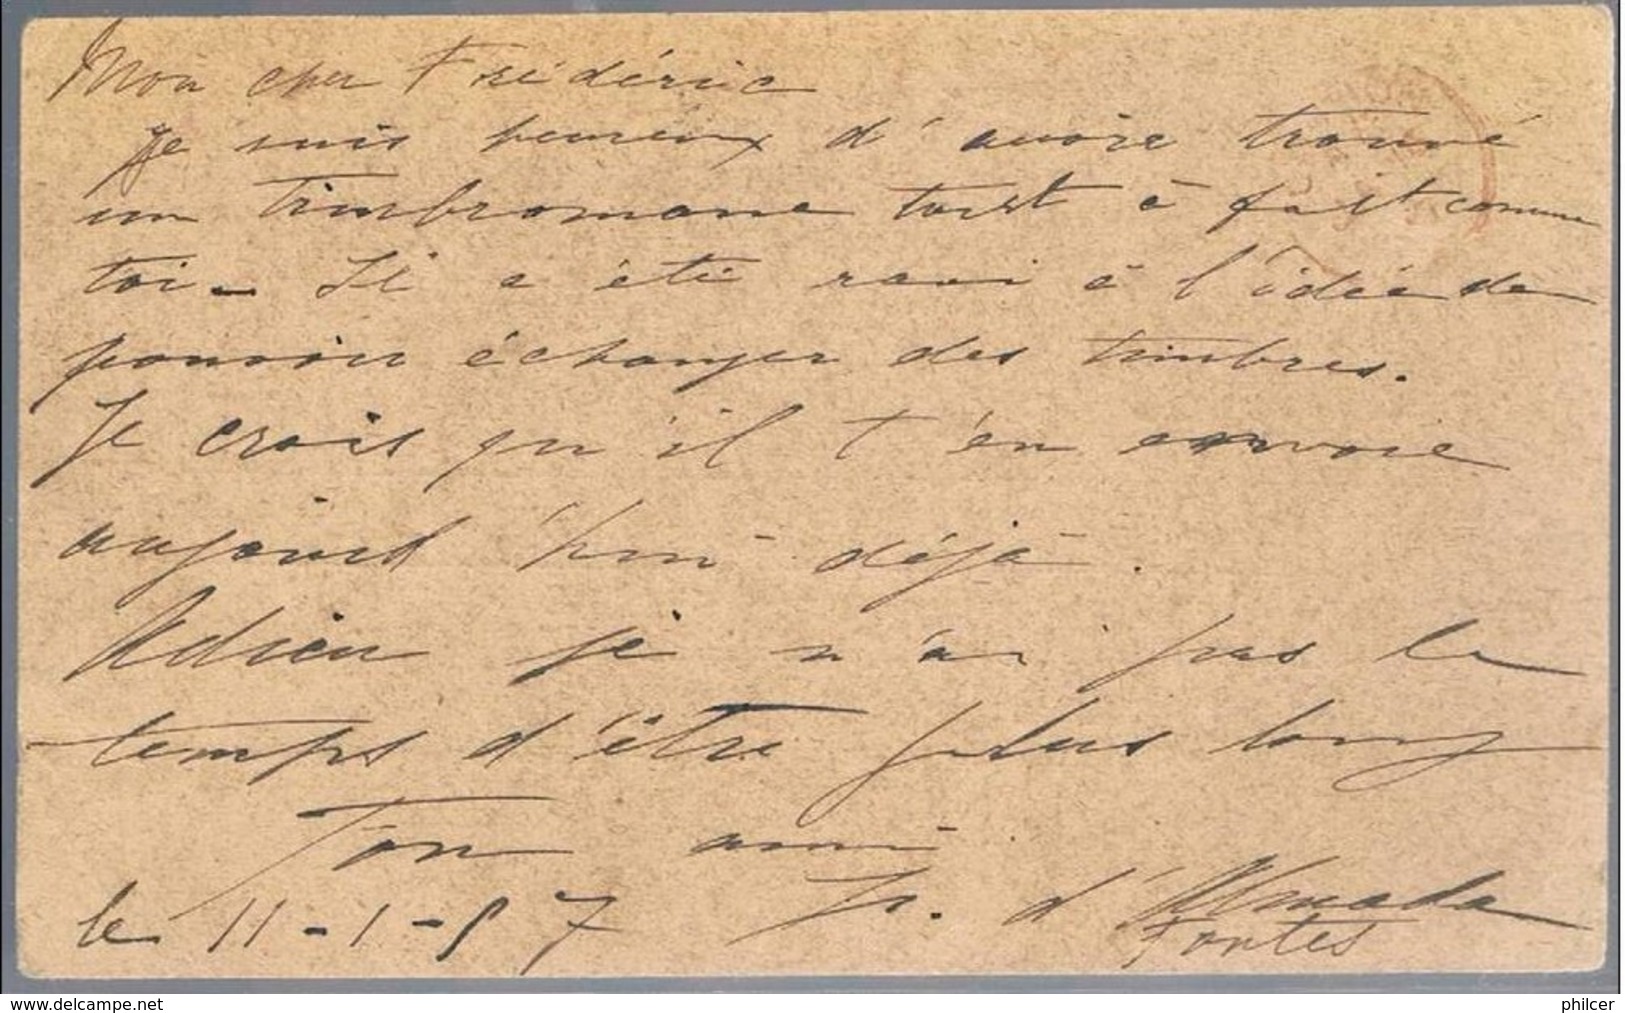 Mon cher Frédéric
je suis heureux d'avoir trouvé
un timbromane tout à fait comme
toi - Il a été ravi à l'idée de
pouvoir échanger des timbres.
Je crois qu'il t'en envoie
aujourd'hui déjà.
Adieu je n'ai pas le
temps d'être plus long
Ton ami
le 11-1-87 Fr. d'Almada
Fontes
delcampe.net
philcer